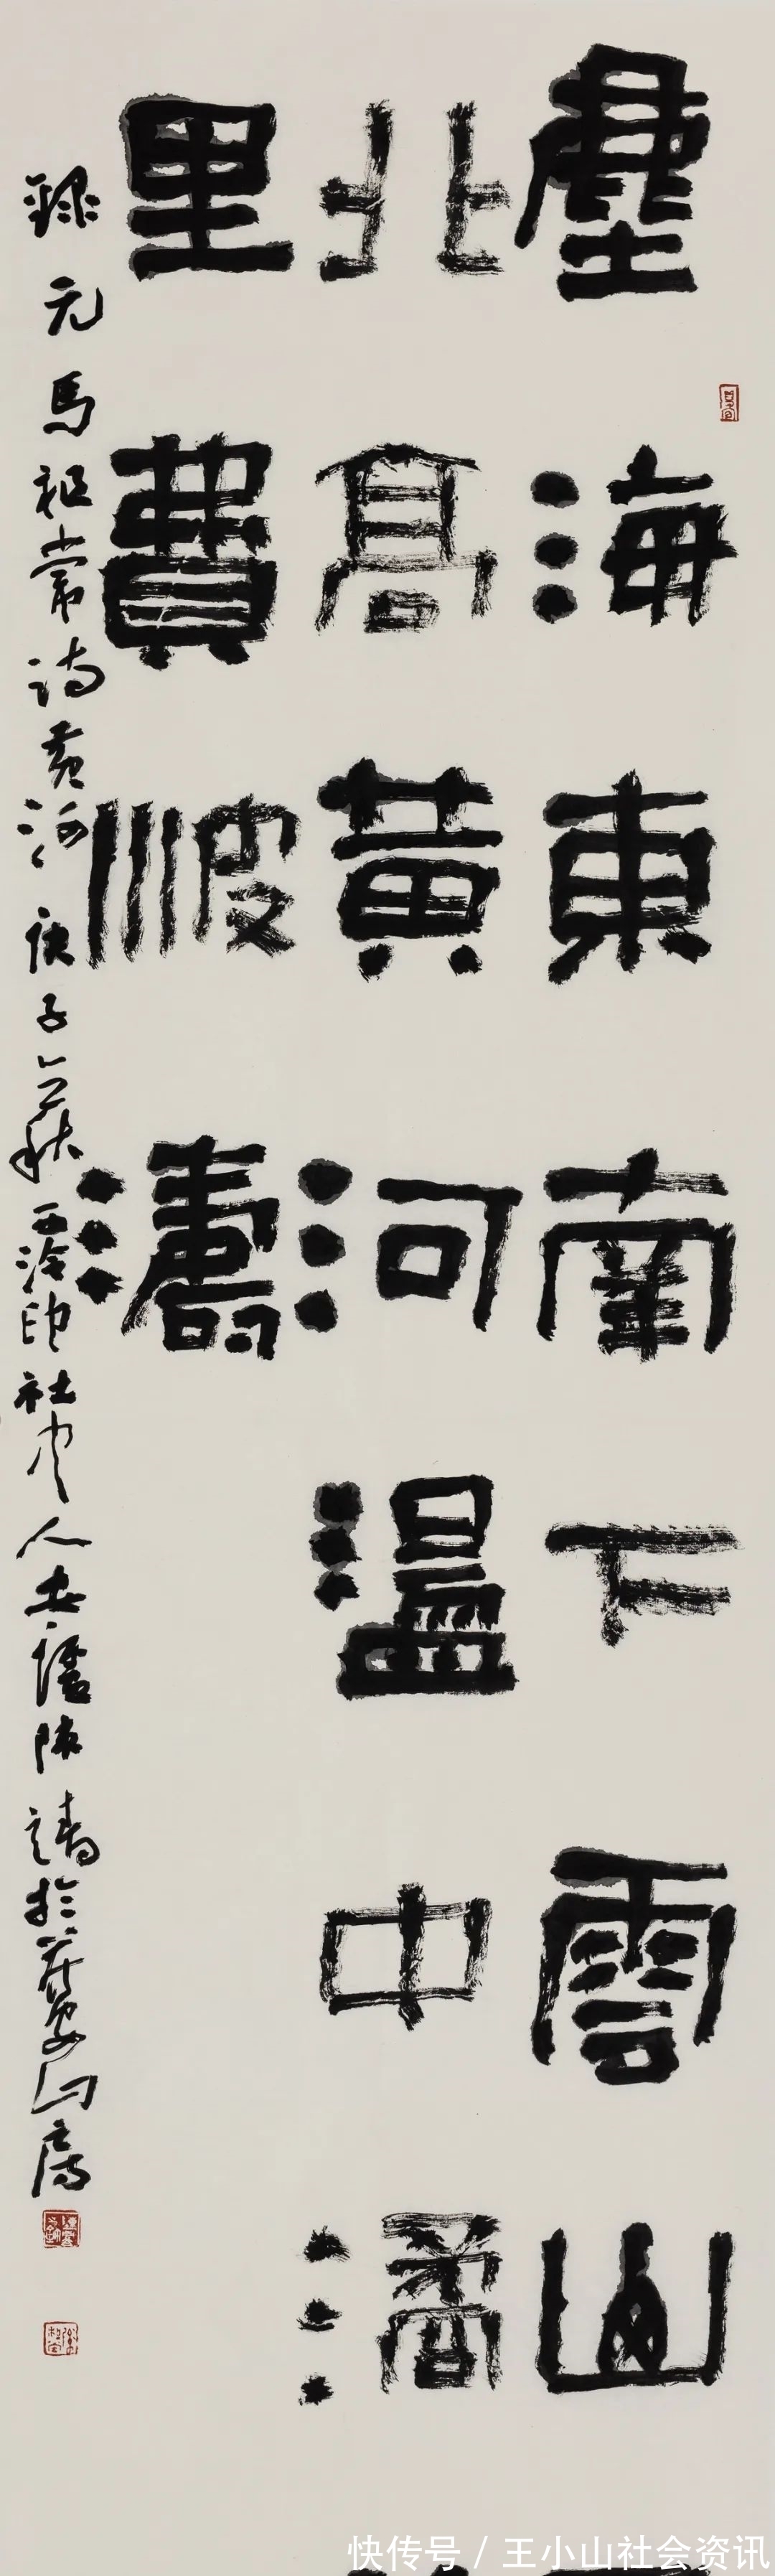 塵海東南下雲山
北高黄河温中潏
里費波濤
錄元馬祖常詩黄河庚子秋西泠印社中人陳於山房
快传号 / 王小山社会资讯